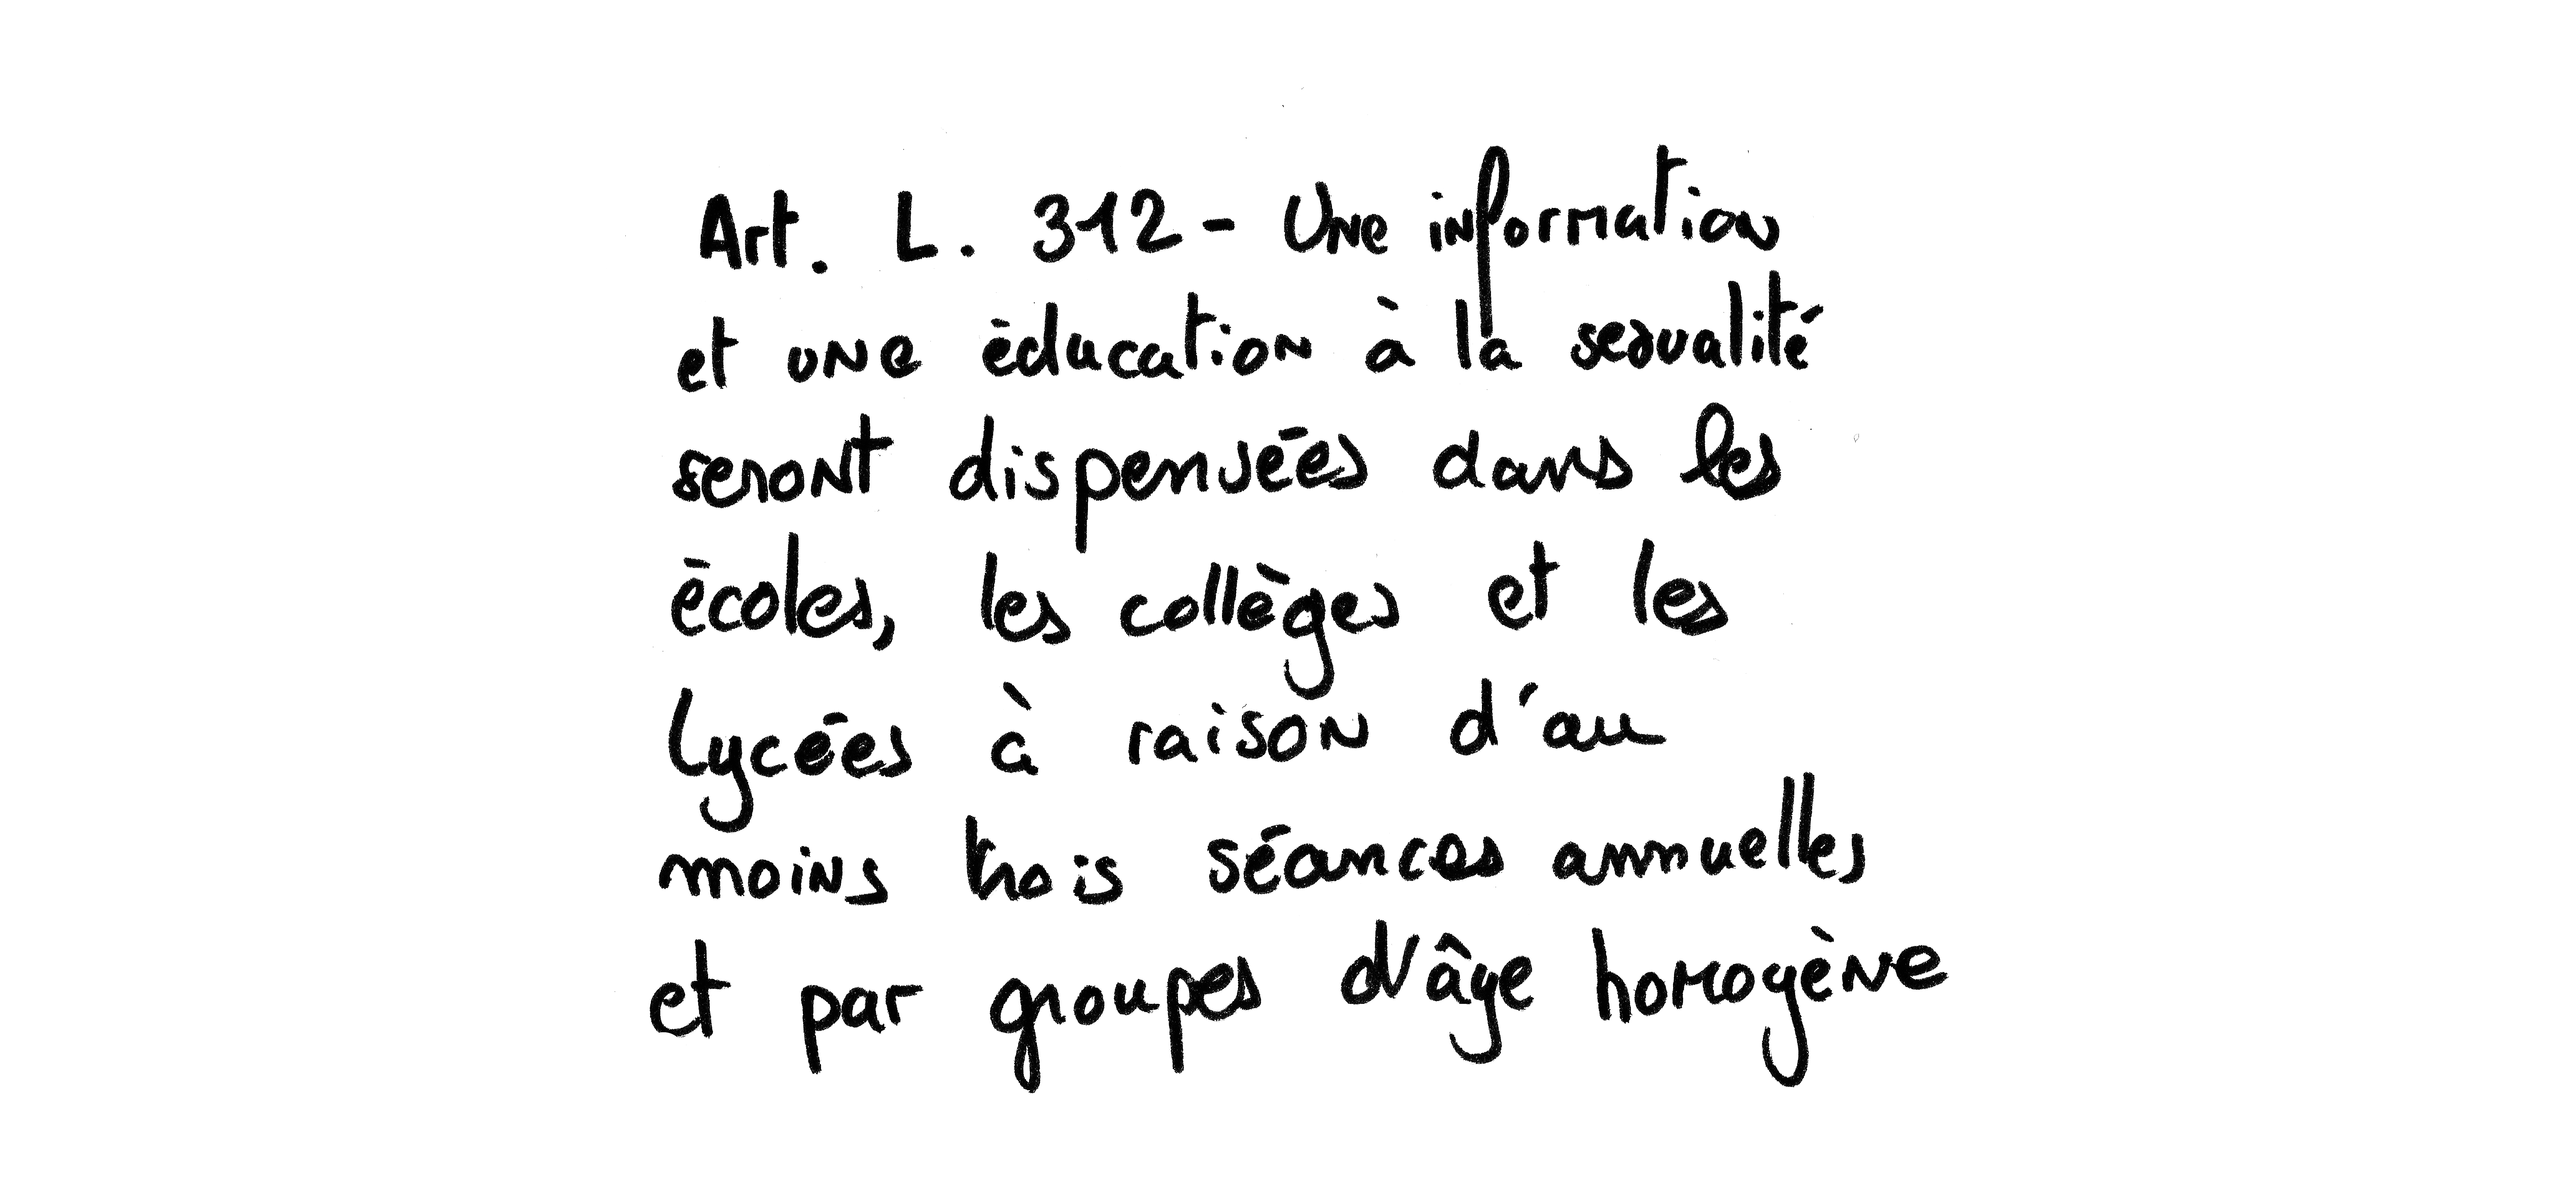 Art. L. 312 - Une information
et une éducation à la sexualité
seront dispensées dans les
écoles, les collèges et les
lycées à raison d'au
moins trois séances annuelles
et par groupes d'âge homogène